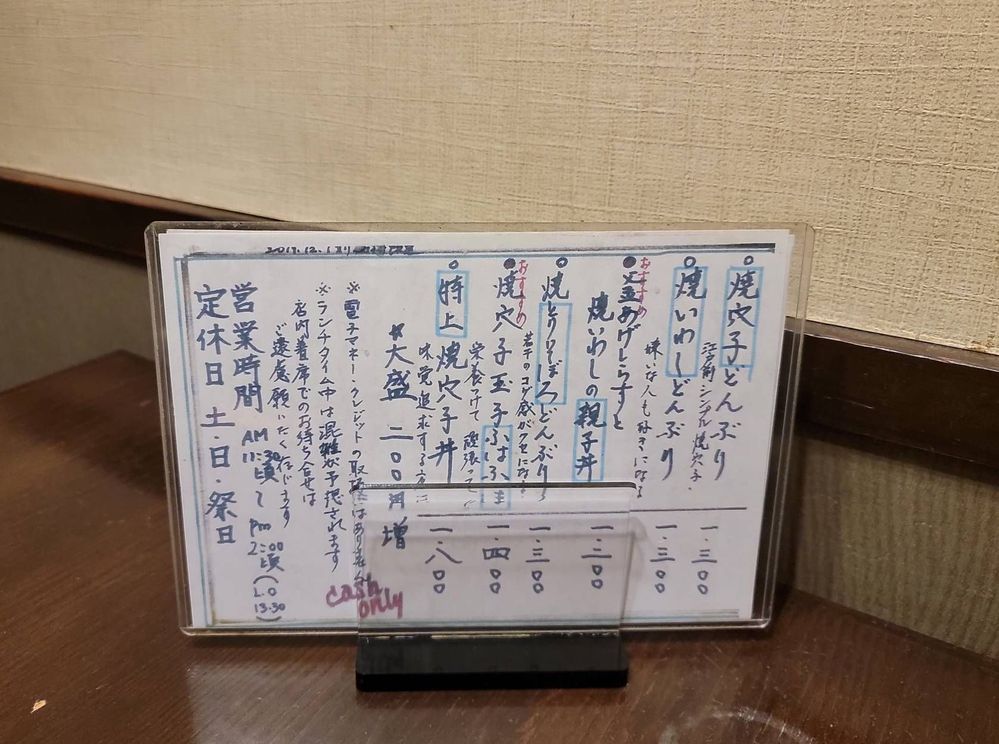 焼穴子どんぶり 一.三〇〇
江戸前シンプル焼穴子。
焼いわしどんぶり 一.三〇〇
嫌いな人も好きになる
おすすめ
釜あげしらすと
焼いわしの親子丼 一.三〇〇
焼とりそぼろどんぶり 一.三〇〇
若干のコゲ感がクセになる
おすすめ
焼穴子玉子 一.四〇〇
栄養つけて 頑張って
特上 焼穴子丼 一.八〇〇
味覚追求する方に
*大盛 二〇〇円増
※電子マネー・クレジットの取扱はありません
cash only
※ランチタイム中は混雑が予想されます
店内着席でのお待ち合せは
ご遠慮願いたく存じます
営業時間 AM 11:30頃〜PM 2:00頃(L.O 13.30)
定休日 土・日・祭日